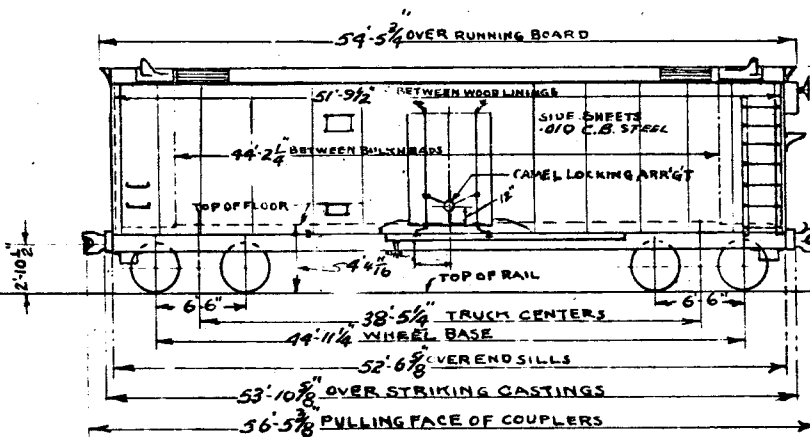 54'-5 3/4" OVER RUNNING BOARD
51'-9 1/2" BETWEEN WOOD LININGS
SIDE SHEETS
.010 C.B. STEEL
44'-2 1/4" BETWEEN BULKHEADS
CAMEL LOCKING ARR'G'T
12"
TOP OF FLOOR
2'-10 1/2"
TOP OF RAIL
6'-6"
6'-6"
38'-5 1/4" TRUCK CENTERS
44'-11 1/4" WHEEL BASE
52'-6 5/8" OVER END SILLS
53'-10 5/8" OVER STRIKING CASTINGS
56'-5 3/8" PULLING FACE OF COUPLERS